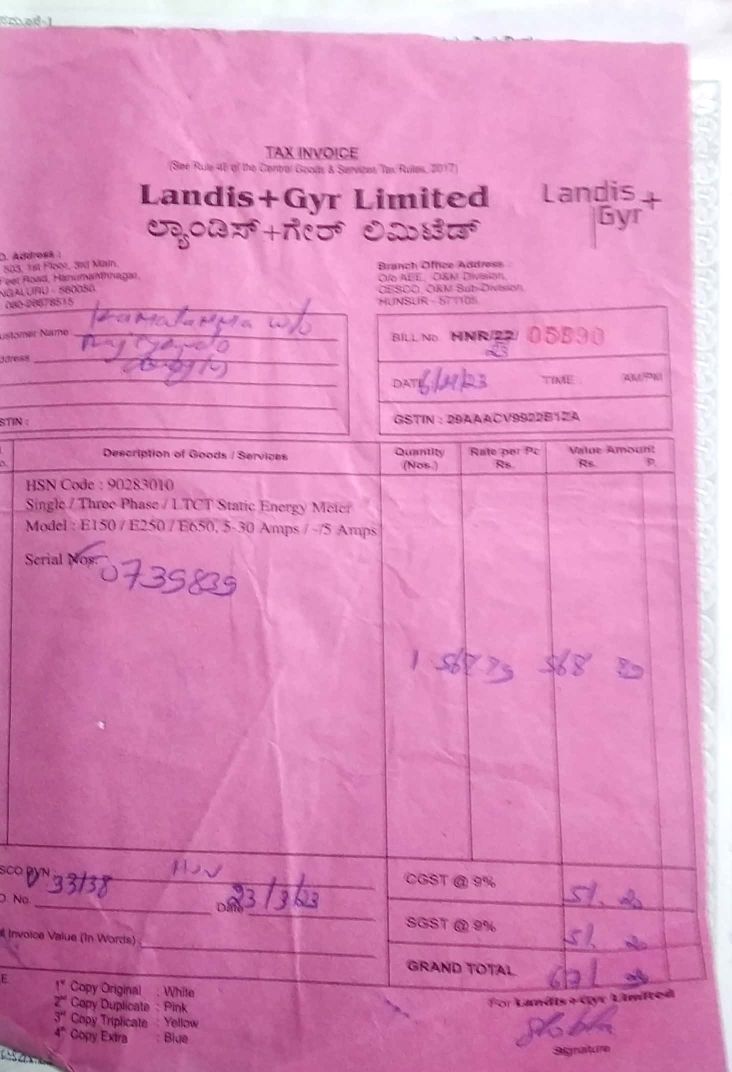 TAX INVOICE
(See Rule 46 of the Central Goods & Services Tax Rules, 2017)
Landis+Gyr Limited
ಲ್ಯಾಂಡಿಸ್+ಗೇರ್ ಲಿಮಿಟೆಡ್
Landis+
Gyr
O. Address :
503, 1st Floor, 3rd Main,
Feet Road, Hanumanthnagar,
NGALURU - 560050.
080-26678515
Branch Office Address :
O/o AEE, O&M Division,
CESCO, O&M Sub-Division,
HUNSUR - 571105.
ustomer Name Kamalamma w/o
ddress
STIN :
BILL No. HNR/22/ 05890
23
DATE 23 TIME : AM/PM
GSTIN : 29AAACV9922B1ZA
Description of Goods / Services
Quantity
(Nos.)
Rate per Pc
Rs.
Value Amount
Rs. P.
HSN Code : 90283010
Single / Three Phase / LTCT Static Energy Meter
Model : E150 / E250 / E650, 5-30 Amps / -/5 Amps
Serial Nos. 0739839
1 568 568
SCO 33/38
O. No. Date 23/3/23
Invoice Value (In Words)
CGST @ 9% 51.
SGST @ 9% 51.
GRAND TOTAL 671
E
1st Copy Original : White
2nd Copy Duplicate : Pink
3rd Copy Triplicate : Yellow
4th Copy Extra : Blue
For Landis+Gyr Limited
Signature